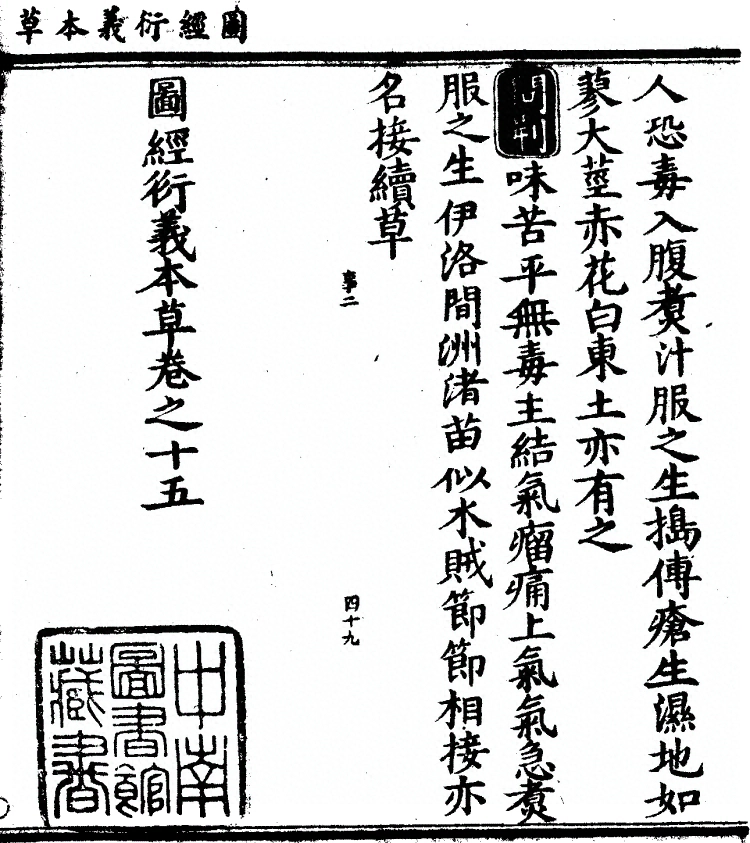 圖經衍義本草
人恐毒入腹煑汁服之生搗傅瘡生濕地如
蓼大莖赤花白東土亦有之
問荆味苦平無毒主結氣瘤痛上氣氣急煑
服之生伊洛間洲渚苗似木賊節節相接亦
名接續草
事二
四十九
圖經衍義本草卷之十五
中南
圖書館
藏書